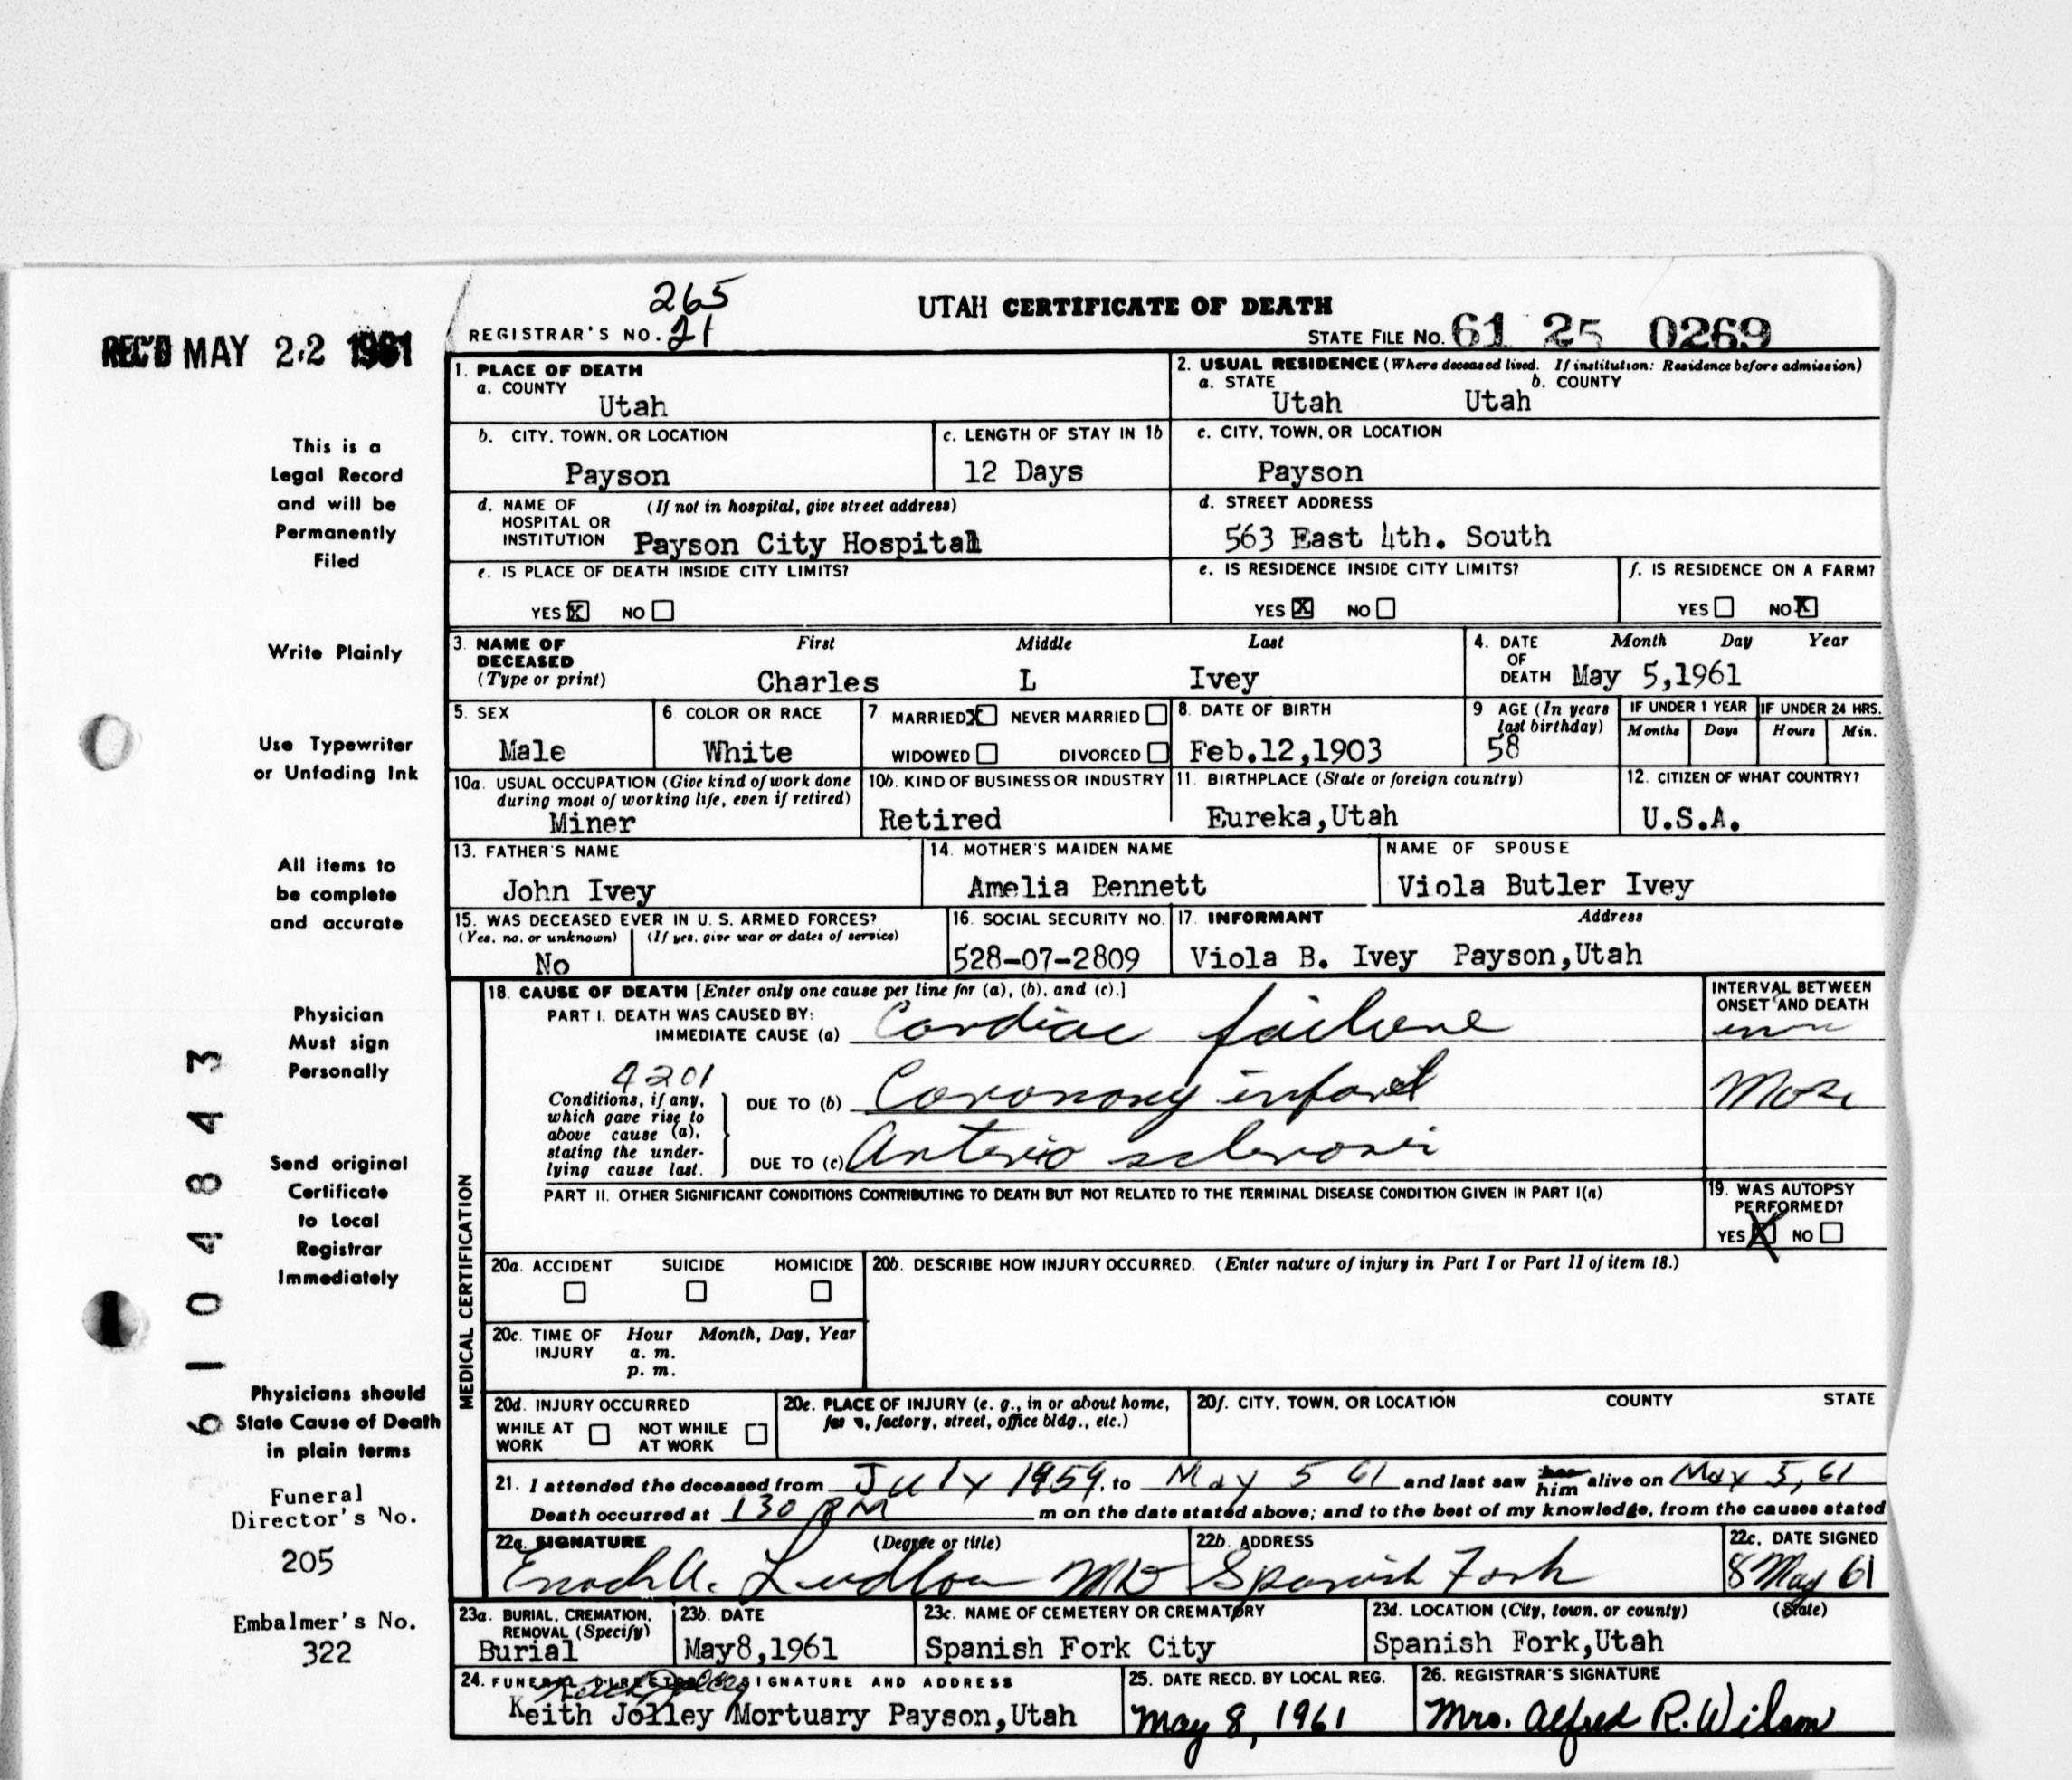 265
UTAH CERTIFICATE OF DEATH
REGISTRAR'S NO. 21
STATE FILE NO. 61 25 0269
REC'D MAY 22 1961
1. PLACE OF DEATH
a. COUNTY
Utah
2. USUAL RESIDENCE (Where deceased lived. If institution: Residence before admission)
a. STATE b. COUNTY
Utah Utah
b. CITY, TOWN, OR LOCATION
Payson
c. LENGTH OF STAY IN 1b
12 Days
c. CITY, TOWN, OR LOCATION
Payson
d. NAME OF (If not in hospital, give street address)
HOSPITAL OR
INSTITUTION Payson City Hospital
d. STREET ADDRESS
563 East 4th. South
e. IS PLACE OF DEATH INSIDE CITY LIMITS?
YES X NO
e. IS RESIDENCE INSIDE CITY LIMITS?
YES X NO
f. IS RESIDENCE ON A FARM?
YES NO X
3. NAME OF DECEASED (Type or print)
First Middle Last
Charles L Ivey
4. DATE OF DEATH
Month Day Year
May 5,1961
5. SEX
Male
6. COLOR OR RACE
White
7 MARRIED X NEVER MARRIED
WIDOWED DIVORCED
8. DATE OF BIRTH
Feb.12,1903
9 AGE (In years last birthday)
58
IF UNDER 1 YEAR
Months Days
IF UNDER 24 HRS.
Hours Min.
10a. USUAL OCCUPATION (Give kind of work done
during most of working life, even if retired)
Miner
10b. KIND OF BUSINESS OR INDUSTRY
Retired
11. BIRTHPLACE (State or foreign country)
Eureka,Utah
12. CITIZEN OF WHAT COUNTRY?
U.S.A.
13. FATHER'S NAME
John Ivey
14. MOTHER'S MAIDEN NAME
Amelia Bennett
NAME OF SPOUSE
Viola Butler Ivey
15. WAS DECEASED EVER IN U. S. ARMED FORCES?
(Yes, no, or unknown) (If yes, give war or dates of service)
No
16. SOCIAL SECURITY NO.
528-07-2809
17. INFORMANT Address
Viola B. Ivey Payson,Utah
MEDICAL CERTIFICATION
18. CAUSE OF DEATH [Enter only one cause per line for (a), (b), and (c).]
PART I. DEATH WAS CAUSED BY:
IMMEDIATE CAUSE (a) Cardiac failure
INTERVAL BETWEEN
ONSET AND DEATH
4201
Conditions, if any,
which gave rise to
above cause (a),
stating the under-
lying cause last.
DUE TO (b) Coronary infarct
DUE TO (c) Arterio sclerosis
PART II. OTHER SIGNIFICANT CONDITIONS CONTRIBUTING TO DEATH BUT NOT RELATED TO THE TERMINAL DISEASE CONDITION GIVEN IN PART I(a)
19. WAS AUTOPSY
PERFORMED?
YES X NO
20a. ACCIDENT SUICIDE HOMICIDE
20b. DESCRIBE HOW INJURY OCCURRED. (Enter nature of injury in Part I or Part II of item 18.)
20c. TIME OF INJURY
Hour Month, Day, Year
a. m.
p. m.
20d. INJURY OCCURRED
WHILE AT WORK NOT WHILE AT WORK
20e. PLACE OF INJURY (e. g., in or about home,
factory, street, office bldg., etc.)
20f. CITY, TOWN, OR LOCATION COUNTY STATE
21. I attended the deceased from July 1959, to May 5 61 and last saw her him alive on May 5, 61
Death occurred at 130 PM m on the date stated above; and to the best of my knowledge, from the causes stated
22a. SIGNATURE (Degree or title)
Enoch A. Ludlow MD
22b. ADDRESS
Spanish Fork
22c. DATE SIGNED
8 May 61
23a. BURIAL, CREMATION,
REMOVAL (Specify)
Burial
23b. DATE
May8,1961
23c. NAME OF CEMETERY OR CREMATORY
Spanish Fork City
23d. LOCATION (City, town, or county) (State)
Spanish Fork,Utah
24. FUNERAL DIRECTOR'S SIGNATURE AND ADDRESS
Keith Jolley
Keith Jolley Mortuary Payson,Utah
25. DATE RECD. BY LOCAL REG.
May 8, 1961
26. REGISTRAR'S SIGNATURE
Mrs. Alfred R. Wilson
This is a
Legal Record
and will be
Permanently
Filed
Write Plainly
Use Typewriter
or Unfading Ink
All items to
be complete
and accurate
Physician
Must sign
Personally
Send original
Certificate
to Local
Registrar
Immediately
Physicians should
State Cause of Death
in plain terms
Funeral
Director's No.
205
Embalmer's No.
322
6104843